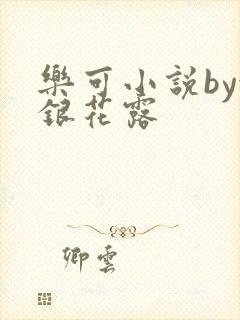 樂可小説by
銀花露
卿雲